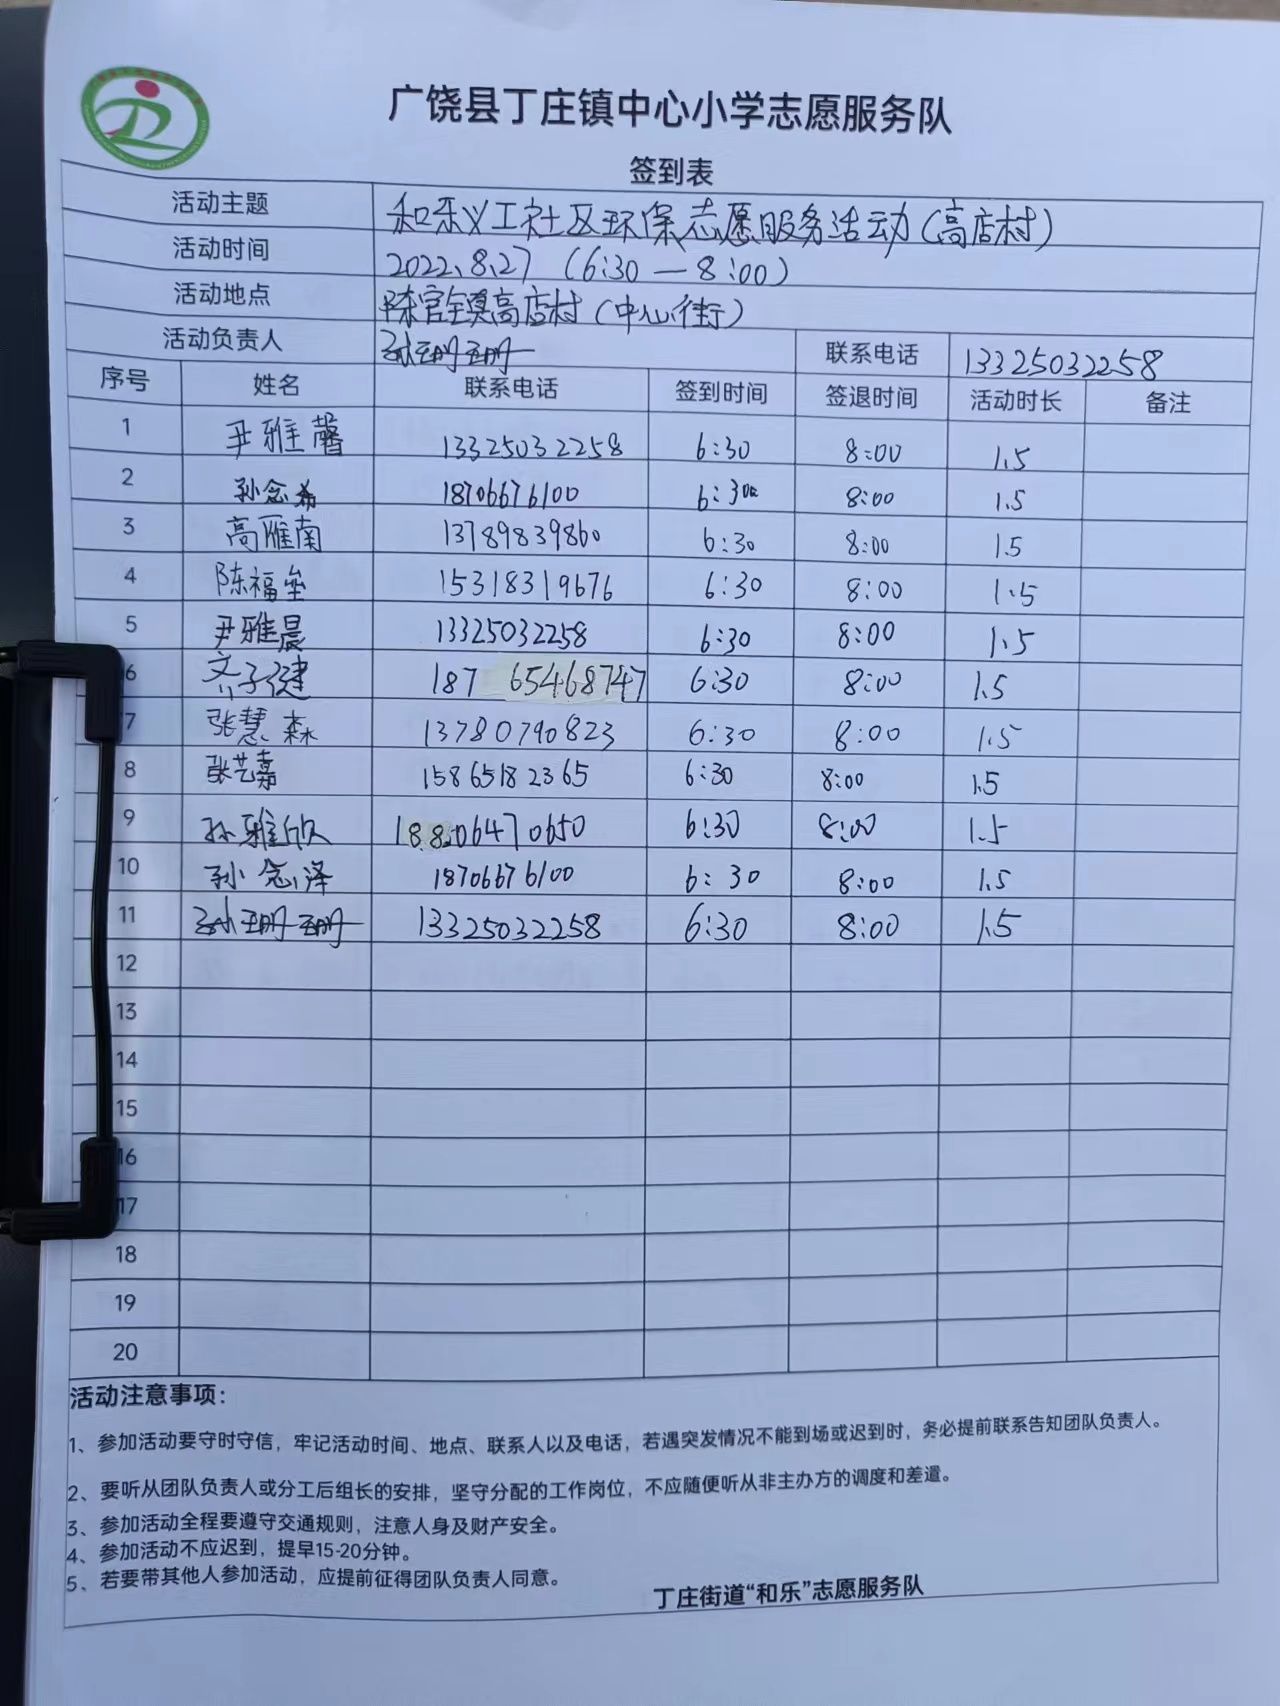 广饶县丁庄镇中心小学志愿服务队
签到表
活动主题 和乐义工社区环保志愿服务活动(高店村)
活动时间 2022.8.27 (6:30—8:00)
活动地点 陈官镇高店村(中心街)
活动负责人 孙珊珊 联系电话 13325032258
序号 姓名 联系电话 签到时间 签退时间 活动时长 备注
1 尹雅馨 13325032258 6:30 8:00 1.5
2 孙念希 18706676100 6:30 8:00 1.5
3 高雁南 13789839860 6:30 8:00 1.5
4 陈福垒 15318319676 6:30 8:00 1.5
5 尹雅晨 13325032258 6:30 8:00 1.5
6 齐子健 187 65468747 6:30 8:00 1.5
7 张慧森 13780790823 6:30 8:00 1.5
8 张艺嘉 15865182365 6:30 8:00 1.5
9 孙雅欣 6:30 8:00 1.5
10 孙念泽 18706676100 6:30 8:00 1.5
11 孙珊珊 13325032258 6:30 8:00 1.5
12
13
14
15
16
17
18
19
20
活动注意事项：
1、参加活动要守时守信，牢记活动时间、地点、联系人以及电话，若遇突发情况不能到场或迟到时，务必提前联系告知团队负责人。
2、要听从团队负责人或分工后组长的安排，坚守分配的工作岗位，不应随便听从非主办方的调度和差遣。
3、参加活动全程要遵守交通规则，注意人身及财产安全。
4、参加活动不应迟到，提早15-20分钟。
5、若要带其他人参加活动，应提前征得团队负责人同意。
丁庄街道“和乐”志愿服务队